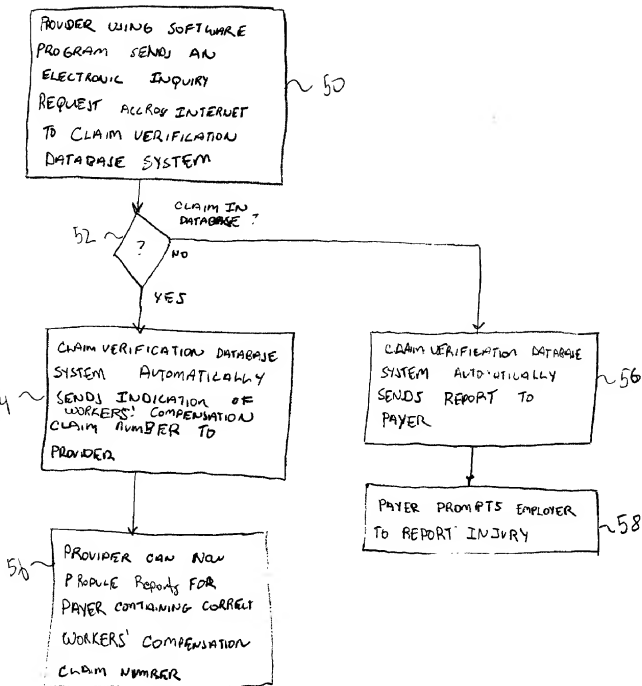 PROVIDER USING SOFTWARE
PROGRAM SENDS AN
ELECTRONIC INQUIRY
REQUEST ACCROSS INTERNET
TO CLAIM VERIFICATION
DATABASE SYSTEM
50
CLAIM IN
DATABASE ?
52
?
NO
YES
CLAIM VERIFICATION DATABASE
SYSTEM AUTOMATICALLY
SENDS INDICATION OF
WORKERS' COMPENSATION
CLAIM NUMBER TO
PROVIDER
4
CLAIM VERIFICATION DATABASE
SYSTEM AUTOMATICALLY
SENDS REPORT TO
PAYER
56
PAYER PROMPTS EMPLOYER
TO REPORT INJURY
58
PROVIDER CAN NOW
PRODUCE Reports FOR
PAYER CONTAINING CORRECT
WORKERS' COMPENSATION
CLAIM NUMBER
56